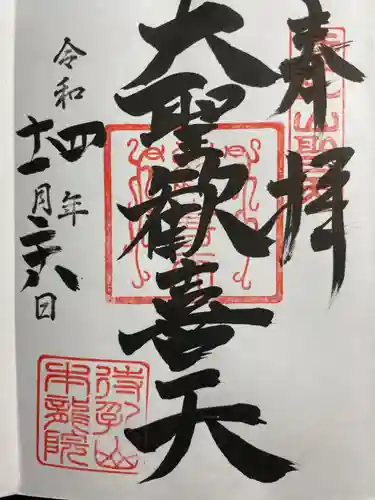 奉拝
大聖歓喜天
令和四年
十一月二十八日
待乳山
本龍院